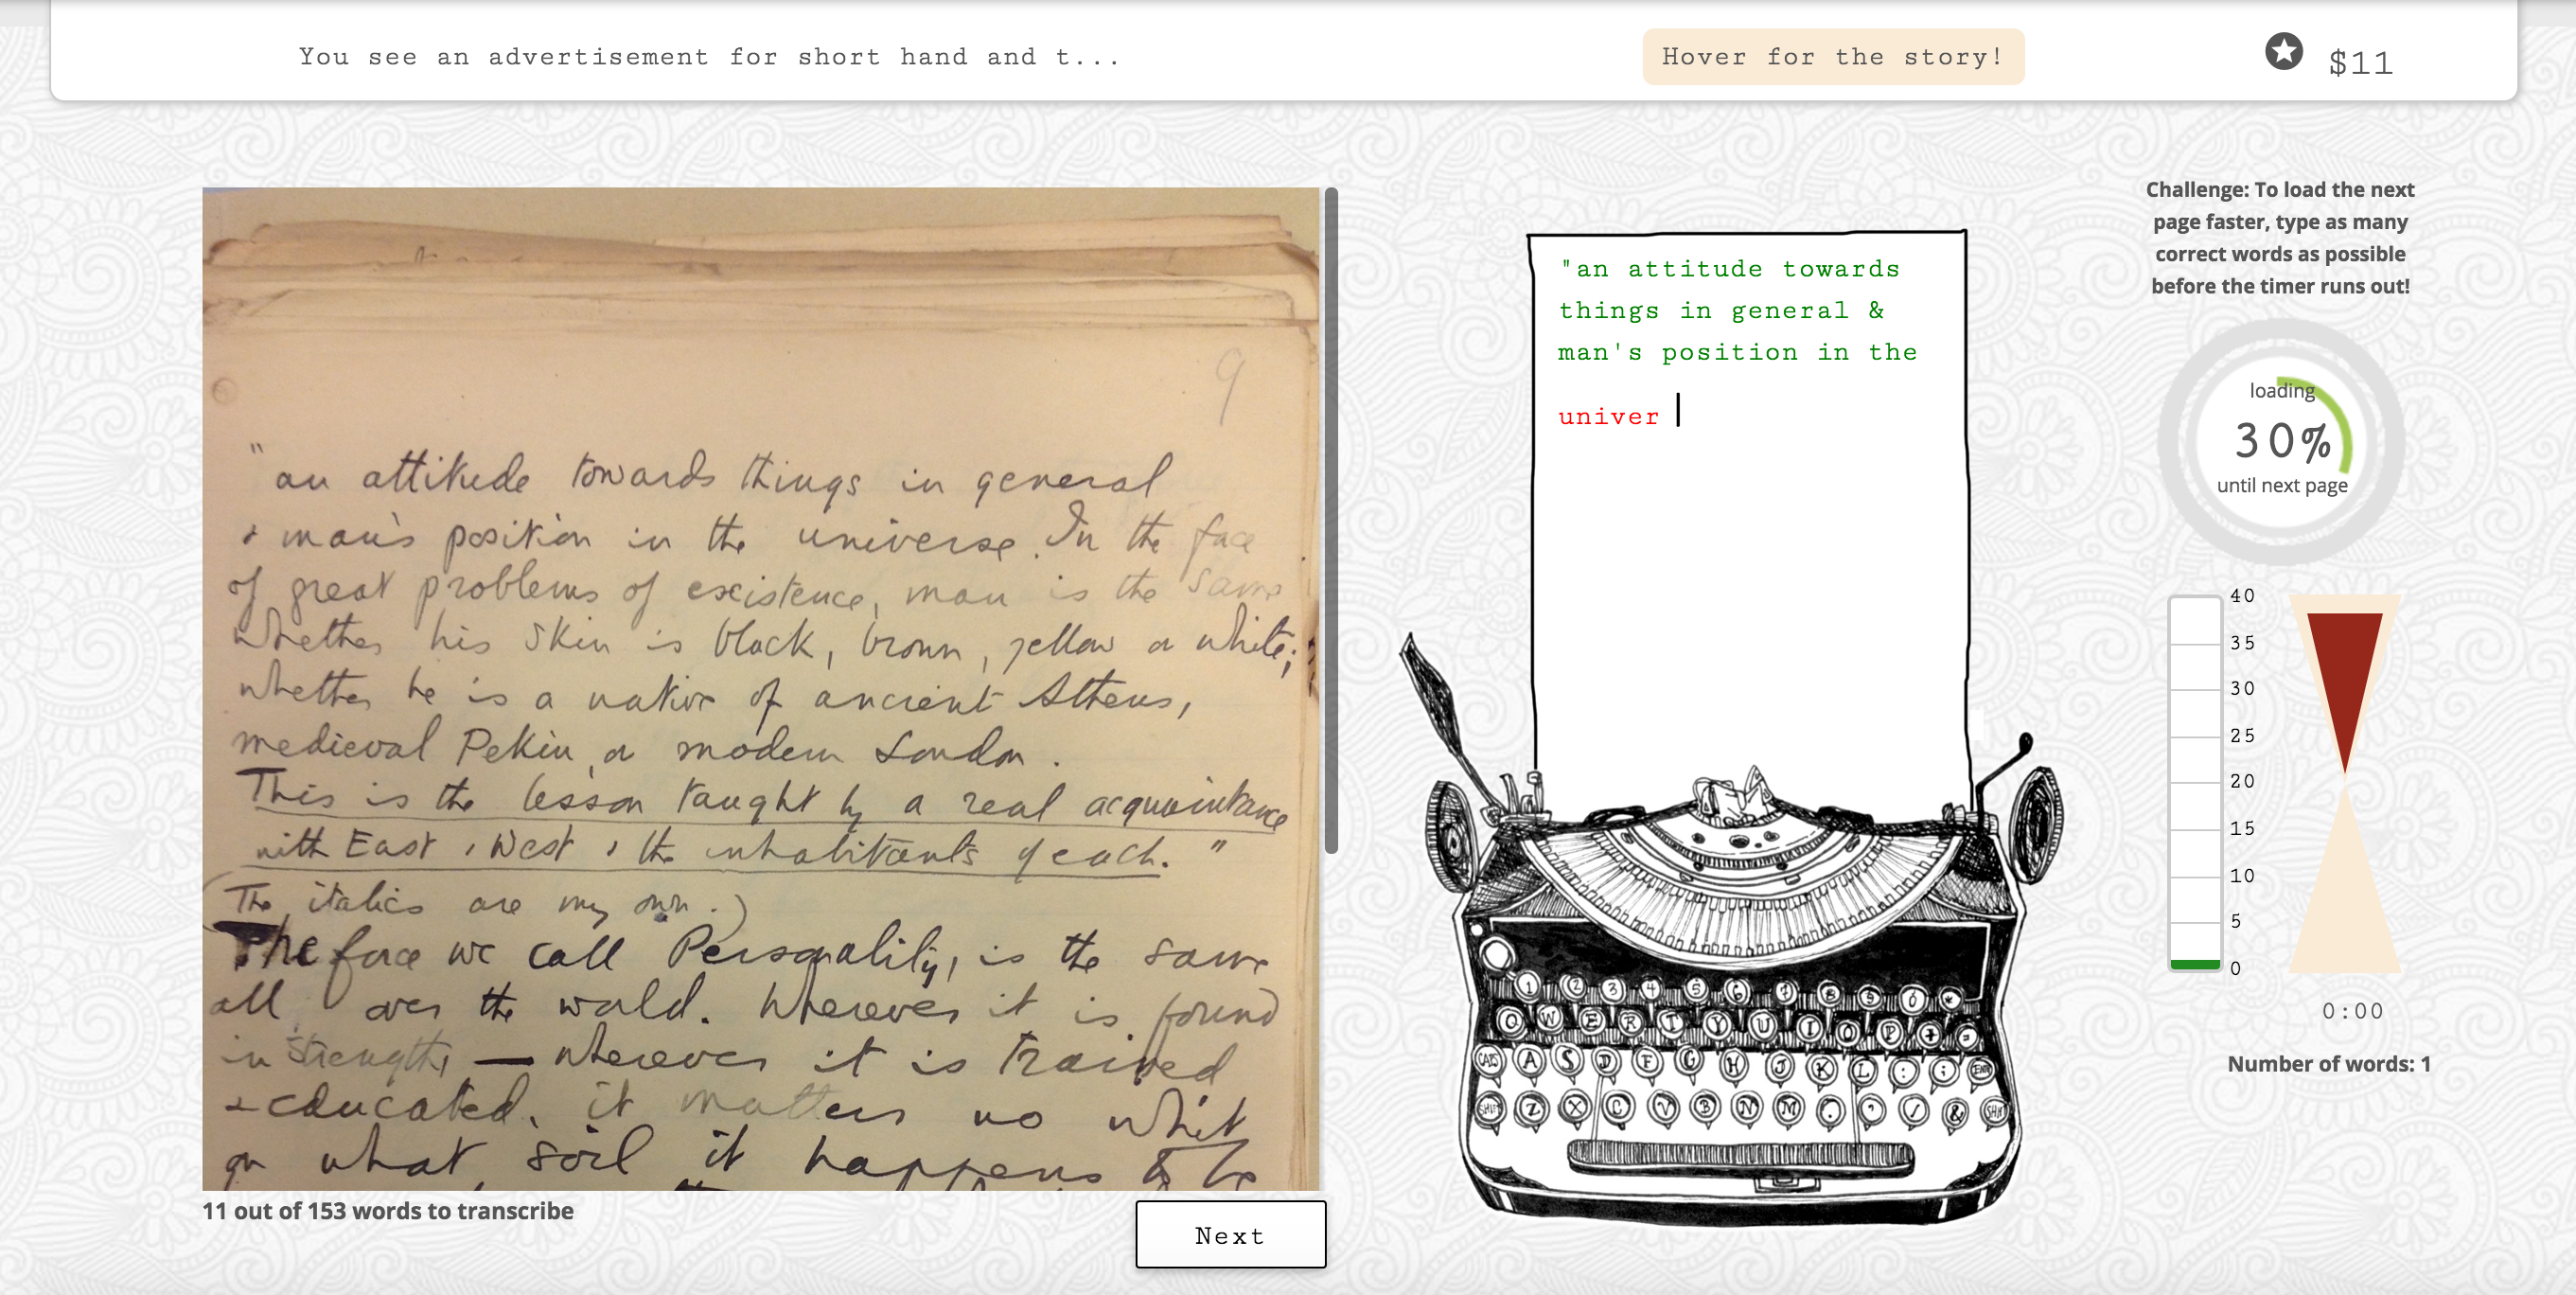 You see an advertisement for short hand and t...
Hover for the story!
$11
9
"an attitude towards things in general
& man's position in the universe. In the face
of great problems of existence, man is the same
whether his skin is black, brown, yellow or white;
whether he is a native of ancient Athens,
medieval Pekin, or modern London.
This is the lesson taught by a real acquaintance
with East & West & the inhabitants of each."
(The italics are my own.)
The force we call Personality, is the same
all over the world. Wherever it is found
in strength, — wherever it is trained
& educated, it matters no whit
on what soil it happens to be
11 out of 153 words to transcribe
Next
"an attitude towards
things in general &
man's position in the
univer
Challenge: To load the next
page faster, type as many
correct words as possible
before the timer runs out!
loading
30%
until next page
40
35
30
25
20
15
10
5
0
0:00
Number of words: 1
1 2 3 4 5 6 7 8 9 0 *
Q W E R T Y U I O P
A S D F G H J K L : ;
Z X C V B N M . , / &